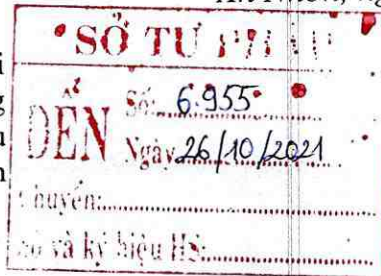 SỞ TƯ PHÁP
ĐẾN
Số: 6.955
Ngày 26/10/2021
Chuyển:
Số và ký hiệu HS: